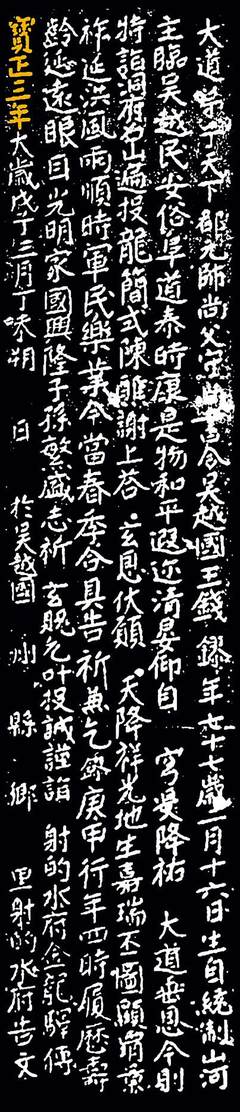 大道弟子天下都元帥尚父守尚書令吳越國王錢 鏐年七十七歲二月十六日生自統制山河
主臨吳越民安俗阜道泰時康是物和平遐迩清晏仰自 穹旻降祐 大道垂恩今則
特詣洞府名山遍投龍簡式陳醮謝上答 玄恩伏願 天降祥光地生嘉瑞丕圖顯霸業
祚延洪風雨順時軍民樂業今當春季合具告祈兼乞鏐庚甲行年四時履歷壽
齡延遠眼目光明家國興隆子孫繁盛志祈 玄貺允叶投誠謹詣 射的水府金龍驛傳
寶正三年太歲戊子三月丁未朔 日 於吳越國 州 縣 鄉 里射的水府告文